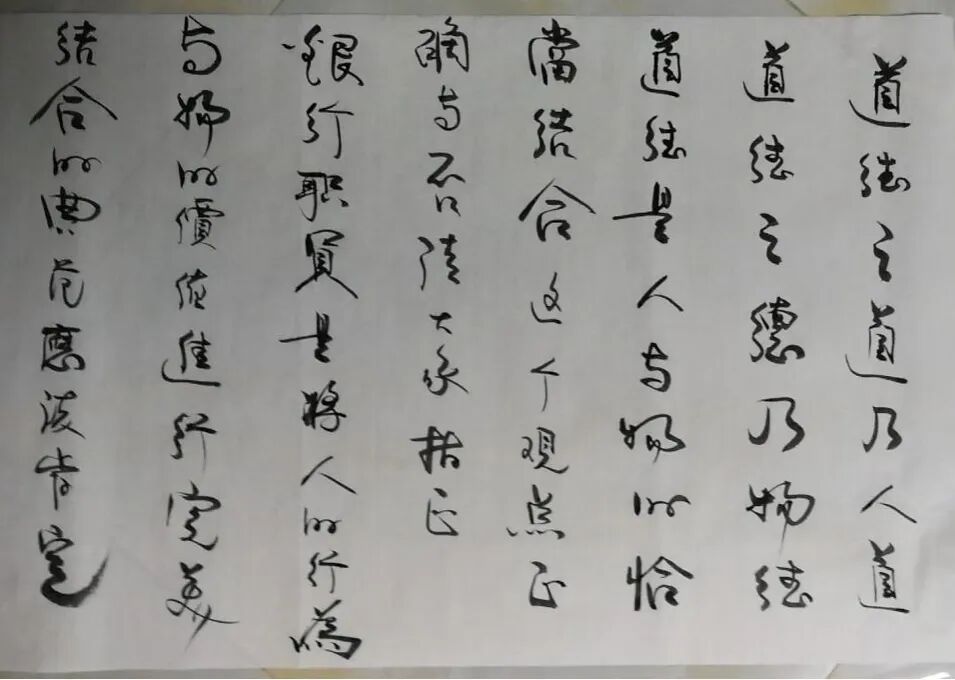 道德之道乃人道
道德之德乃物德
道德是人与物的恰
當结合这个观点正
确与否请大家指正
銀行职員是將人的行為
与物的價值進行完美
结合的典范應该肯定